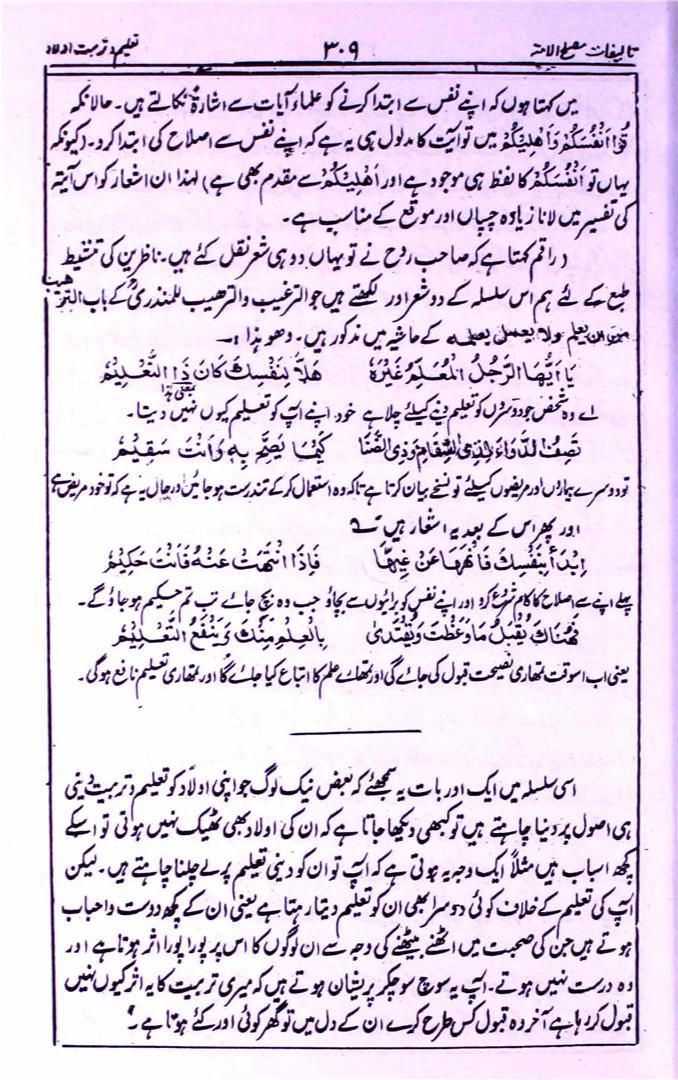 تالیفات مصلح الامۃ ۳۰۹ تعلیم و تربیت اولاد
میں کہتا ہوں کہ اپنے نفس سے ابتدا کرنے کو علماء آیات سے اشارۃً نکالتے ہیں۔ حالانکہ
قُوْا اَنْفُسَكُمْ وَاَهْلِيْكُمْ میں تو آیت کا مدلول ہی یہ ہے کہ اپنے نفس سے اصلاح کی ابتدا کرو۔ (کیونکہ
یہاں تو اَنْفُسَكُمْ کا لفظ ہی موجود ہے اور اَهْلِيْكُمْ سے مقدم بھی ہے) لہذا ان اشعار کو اس آیتہ
کی تفسیر میں لانا زیادہ چسپاں اور موقع کے مناسب ہے۔
(راقم کہتا ہے کہ صاحب روح نے تو یہاں دو ہی شعر نقل کئے ہیں۔ ناظرین کی تنشیط
طبع کے لئے ہم اس سلسلہ کے دو شعر اور لکھتے ہیں جو الترغیب والترھیب للمنذریؒ کے باب الترھیب
من ان یعلم ولا یعمل بعلمہ کے حاشیہ میں مذکور ہیں۔ وھو ہذا :۔
يَا اَيُّهَا الرَّجُلُ الْمُعَلِّمُ غَيْرَهُ هَلَّا لِنَفْسِكَ كَانَ ذَا التَّعْلِيْمُ
یعنی ہذا
اے وہ شخص جو دوسروں کو تعلیم دینے کیلئے چلا ہے خود اپنے آپ کو تعلیم کیوں نہیں دیتا۔
تَصِفُ الدَّوَاءَ لِذِي السِّقَامِ وَذِي الضَّنَا كَيْمَا يَصِحَّ بِهٖ وَاَنْتَ سَقِيْمُ
تو دوسرے بیماروں اور مریضوں کیلئے تو نسخے بیان کرتا ہے تاکہ وہ استعمال کرکے تندرست ہو جائیں اور حال یہ ہے کہ تو خود مریض ہے
اور پھر اس کے بعد یہ اشعار ہیں ؎
اِبْدَأْ بِنَفْسِكَ فَانْهَهَا عَنْ غَيِّهَا فَاِذَا انْتَهَتْ عَنْهُ فَاَنْتَ حَكِيْمُ
پہلے اپنے سے اصلاح کا کام شروع کرو اور اپنے نفس کو برائیوں سے بچاؤ جب وہ بچ جائے تب تم حکیم ہو جاؤ گے۔
فَهُنَاكَ يُقْبَلُ مَا وَعَظْتَ وَيُقْتَدٰى بِالْعِلْمِ مِنْكَ وَيَنْفَعُ التَّعْلِيْمُ
یعنی اب اسوقت تمھاری نصیحت قبول کی جائے گی اور تمھارے علم کا اتباع کیا جائے گا اور تمھاری تعلیم نافع ہوگی۔
اسی سلسلہ میں ایک اور بات یہ سمجھئے کہ بعض نیک لوگ جو اپنی اولاد کو تعلیم و تربیت دینی
ہی اصول پر دینا چاہتے ہیں تو کبھی دیکھا جاتا ہے کہ ان کی اولاد بھی ٹھیک نہیں ہوتی تو اسکے
کچھ اسباب ہیں مثلاً ایک وجہ یہ ہوتی ہے کہ آپ تو ان کو دینی تعلیم پر لے چلنا چاہتے ہیں۔ لیکن
آپ کی تعلیم کے خلاف کوئی دوسرا بھی ان کو تعلیم دیتا رہتا ہے یعنی ان کے کچھ دوست و احباب
ہوتے ہیں جن کی صحبت میں اٹھنے بیٹھنے کی وجہ سے ان لوگوں کا اس پر پورا پورا اثر ہوتا ہے اور
وہ درست نہیں ہوتے۔ آپ یہ سوچ سوچکر پریشان ہوتے ہیں کہ میری تربیت کا یہ اثر کیوں نہیں
قبول کر رہا ہے آخر وہ قبول کس طرح کرے ان کے دل میں تو گھر کوئی اور کئے ہوتا ہے۔